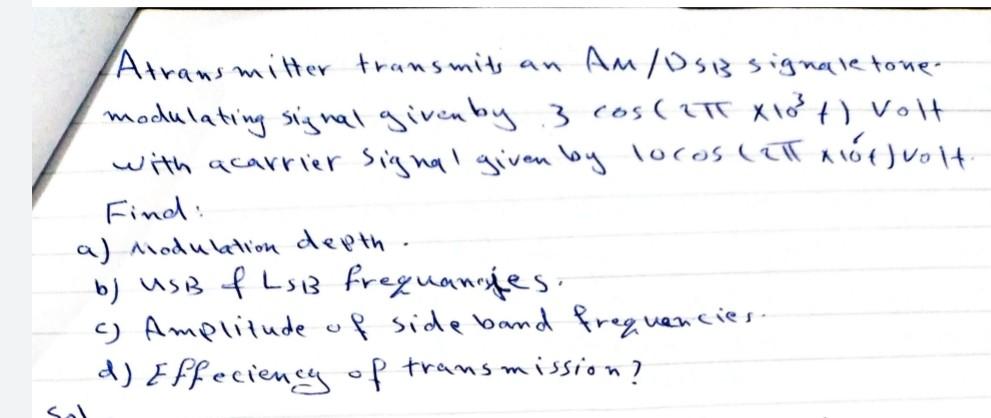 A transmitter transmits an AM/DSB signal etone-
modulating signal given by 3 cos(2π ×10³ t) Volt
with a carrier signal given by 10cos(2π ×10⁶t) volt.
Find:
a) Modulation depth.
b) USB & LSB frequancies.
c) Amplitude of side band frequencies.
d) Effeciency of transmission?
Sol